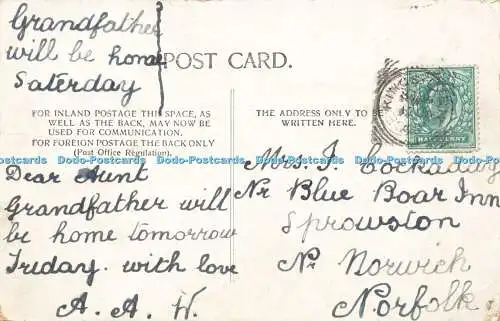 Grandfather
will be home
Saterday
POST CARD.
FOR INLAND POSTAGE THIS SPACE, AS
WELL AS THE BACK, MAY NOW BE
USED FOR COMMUNICATION.
FOR FOREIGN POSTAGE THE BACK ONLY
(Post Office Regulation).
THE ADDRESS ONLY TO
WRITTEN HERE.
HALFPENNY
Dodo-Postcards Dodo-Postcards Dodo-Postcards Dodo-Postcards Dodo-Postcards Dodo-Postcards
Dear Aunt
Grandfather will
be home tomorrow
Friday. with love
A. A. W.
Mrs. J. Cockaday
Nr Blue Boar Inn
Sprowston
Nr Norwich
Norfolk.